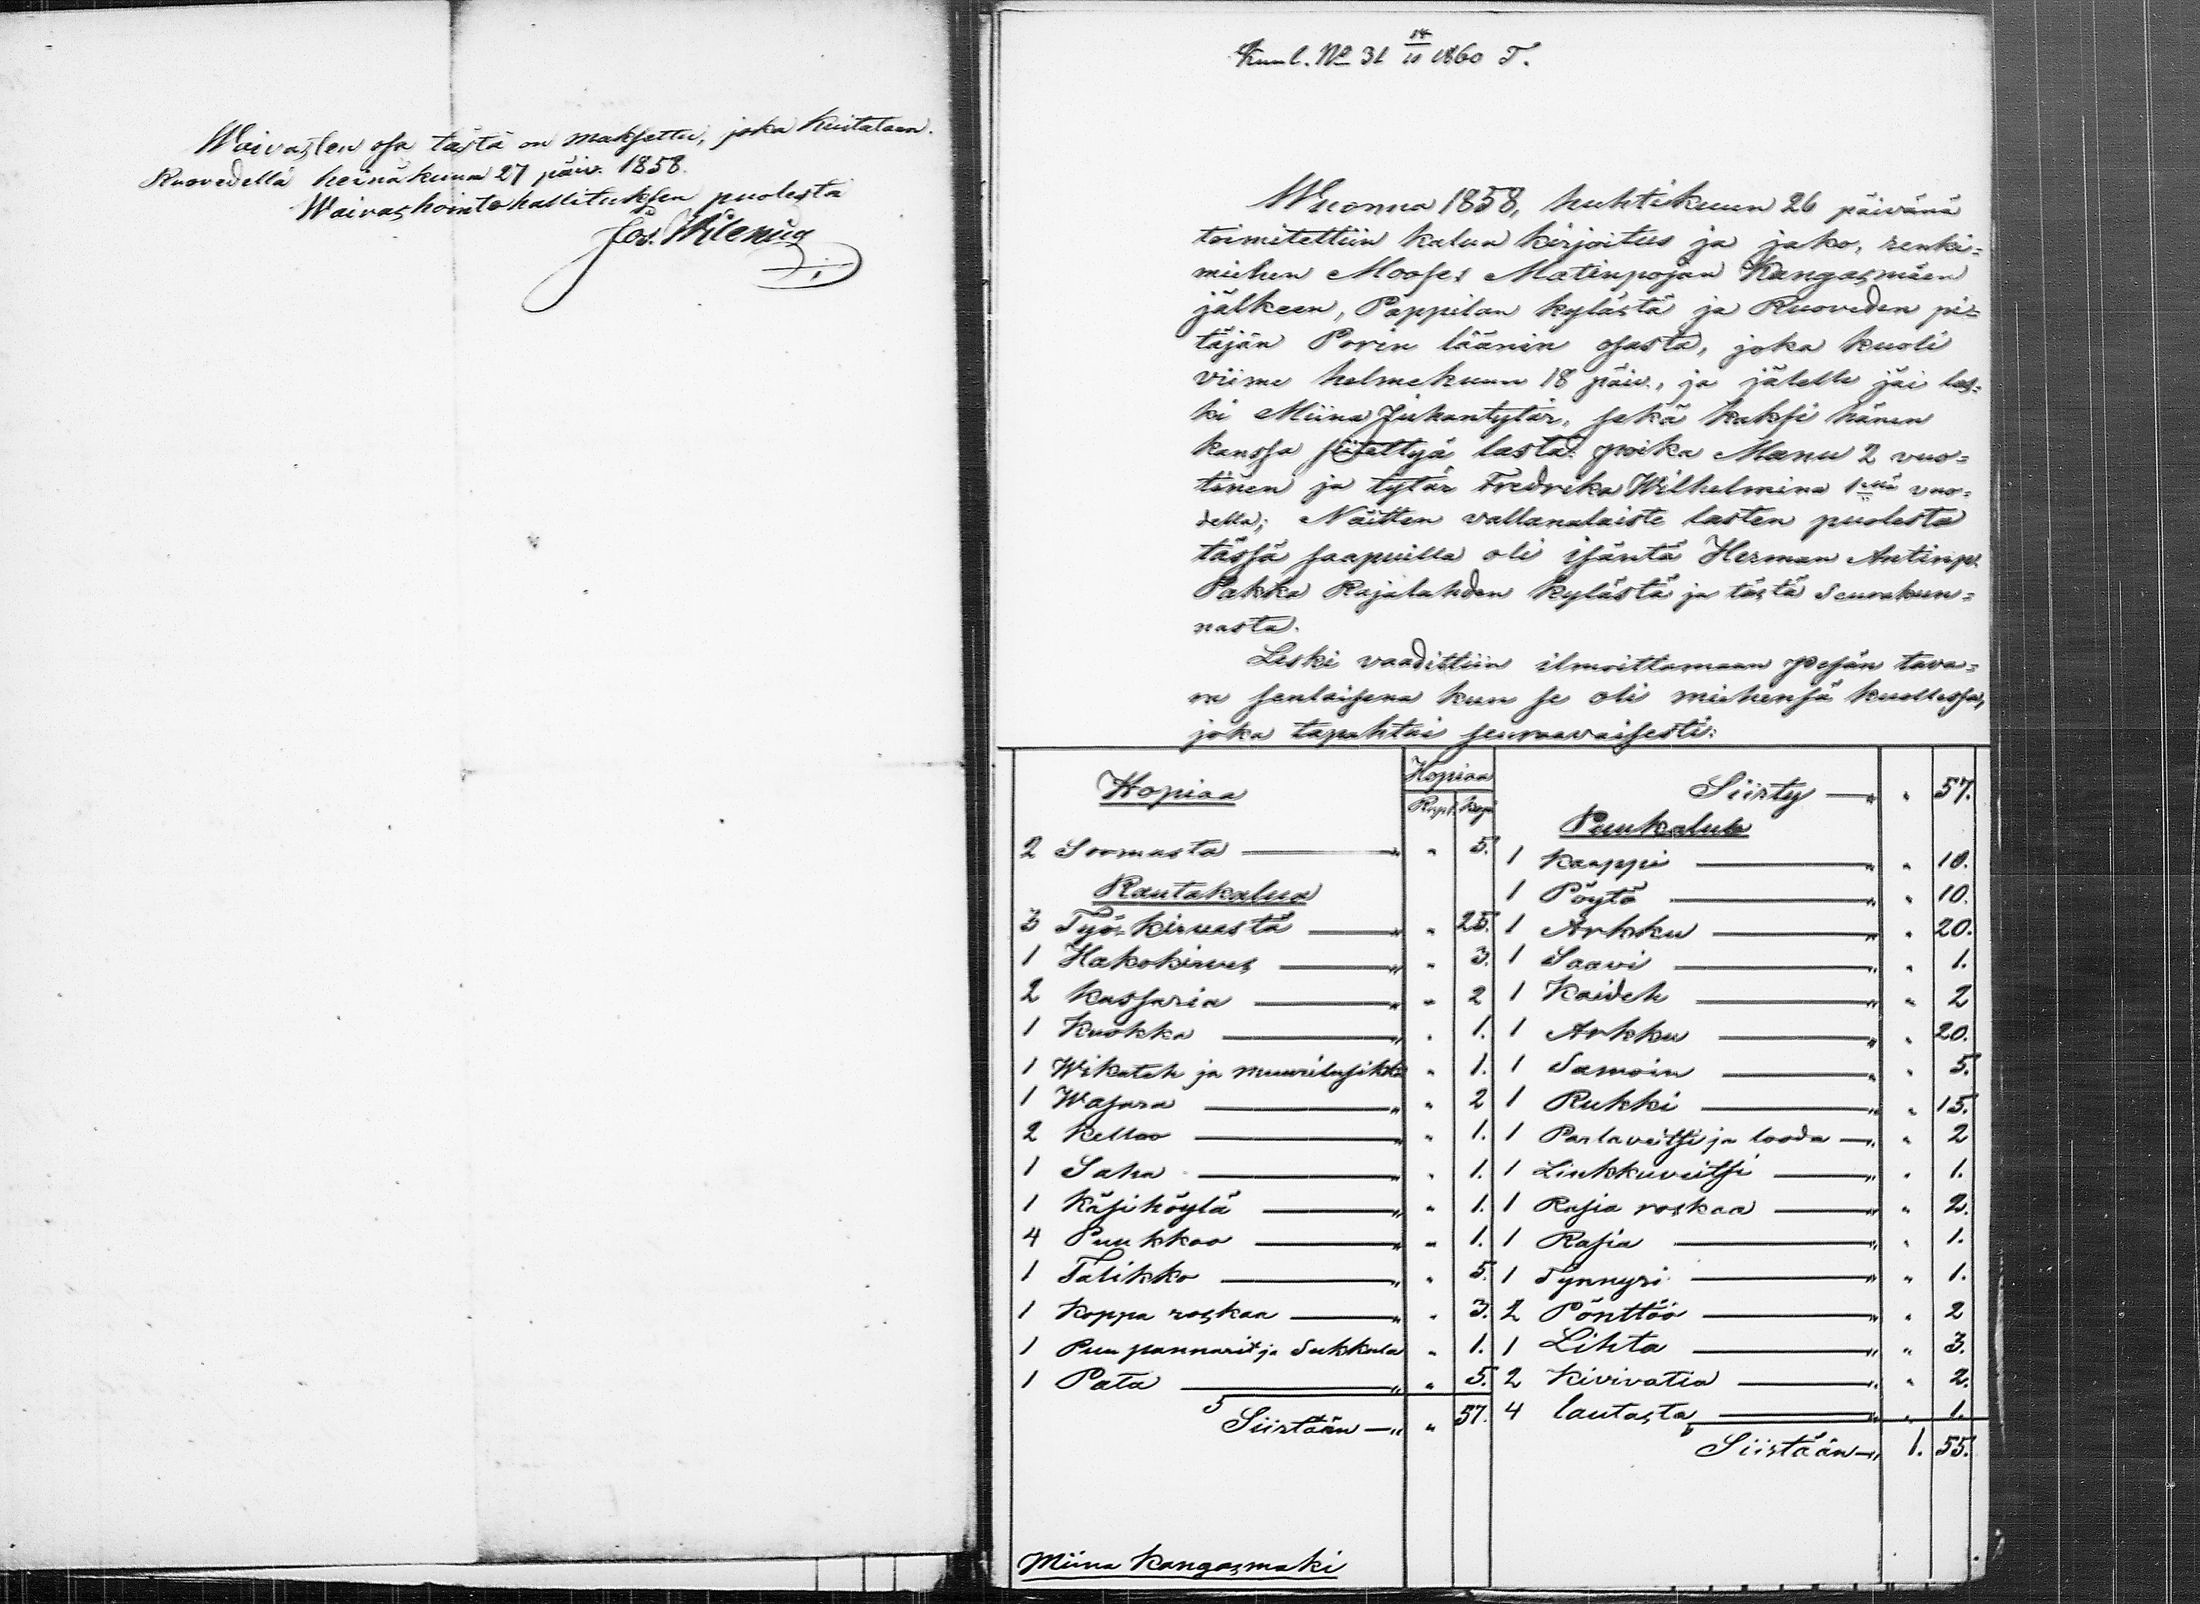 Waivasten osa tästä on maksettu, joka kuitataan.
Ruovedellä heinäkuun 27 päiv. 1858.
Waivashoitohallituksen puolesta
Jos.
Kuul. No 31 14/11 1860 T.
Wuonna 1858, huhtikuun 26 päivänä
toimitettiin kalun kirjoitus ja jako, renki=
miehen Mooses Matinpojan Kangasmäen
jälkeen, Pappilan kylästä ja Ruoveden pi=
täjän Porin läänin osasta, joka kuoli
viime helmekuun 18 päiv., ja jälelle jäi les=
ki Miina Juhontytär, sekä kaksi hänen
kanssa siitettyä lasta: poika Manu 2 vuo=
tinen ja tytär Fredrika Wilhelmina 1:llä vuo=
della; Näitten vallanalaiste lasten puolesta
tässä saapuilla oli isäntä Herman Antinp.
Pakka Rajalahden kylästä ja tästä seurakun=
nasta.
Leski vaadittiin ilmoittamaan pesän tava=
ra senlaisena kun se oli miehensä kuollessa,
joka tapahtui seuraavaisesti:
Hopiaa Hopiaa
Rupl. Kop.
2 Soomusta — " " 5.
Rautakalua
3 Työ-kirvestä — " " 25.
1 Hakokirves — " " 3.
2 Kassaria — " " 2
1 Kuokka — " " 1.
1 Wikateh ja muurilusikka " 1.
1 Wasara — " " 2
2 Kelloo — " " 1.
1 Saha — " " 1.
1 Käsihöylä — " " 1.
4 Puukkoo — " " 1.
1 Talikko — " " 5.
1 Koppa roskaa — " " 3.
1 Puu pannarit ja Sukkula " 1.
1 Pata — " " 5.
Siirtään — " " 57.
Siirty — " " 57.
Puukalut
1 Kaappi — " " 10.
1 Pöytä — " " 10.
1 Arkku — " " 20.
1 Saavi — " " 1.
1 Kaideh — " " 2
1 Arkku — " " 20.
1 Samoin — " " 5.
1 Rukki — " " 15.
1 Parlaveitsi ja looda — " " 2
1 Linkkuveitsi — " " 1.
1 Rasia roskaa — " " 2.
1 Rasia — " " 1.
1 Tynnyri — " " 1.
2 Pönttöö — " " 2
1 Lihta — " " 3.
2 Kivivatia — " " 2.
4 lautasta — " " 1.
Siirtään — " 1. 55.
Miina Kangasmäki